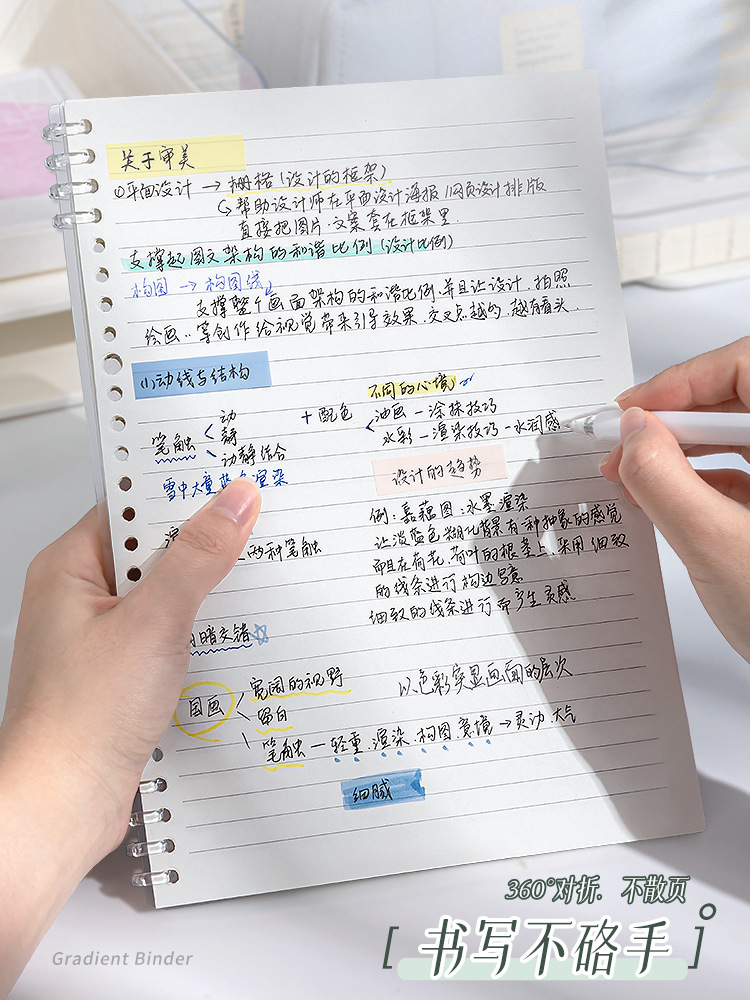 关于审美
①平面设计 → 栅格(设计的框架)
↳ 帮助设计师在平面设计海报 网页设计排版
直接把图片、文案套在框架里
支撑起图文架构的和谐比例(设计比例)
构图 → 构图线
支撑整个画面架构的和谐比例.并且让设计、拍照
绘画..等创作给视觉带来引导效果.交叉点越的.越有看头.
(1)动线与结构
不同的心境
动 + 配色 油画 — 涂抹技巧
笔触 < 静 < 水彩 — 渲染技巧 - 水润感
动静结合
雪中大量蓝色渲染 设计的趋势
例:嘉藕图:水墨渲染
让淡蓝色 糊化背景有一种抽象的感觉
两种笔触 而且在有花、荷叶的根茎上.采用 细致
的线条进行构边
细致的线条进行而产生灵感
暗交错☆
国画 < 宽阔的视野 以色彩突显画面的层次
留白
笔触 — 轻重.渲染.构图.意境 → 灵动.大气
细腻
360°对折. 不散页
[ 书写不硌手 ]
Gradient Binder